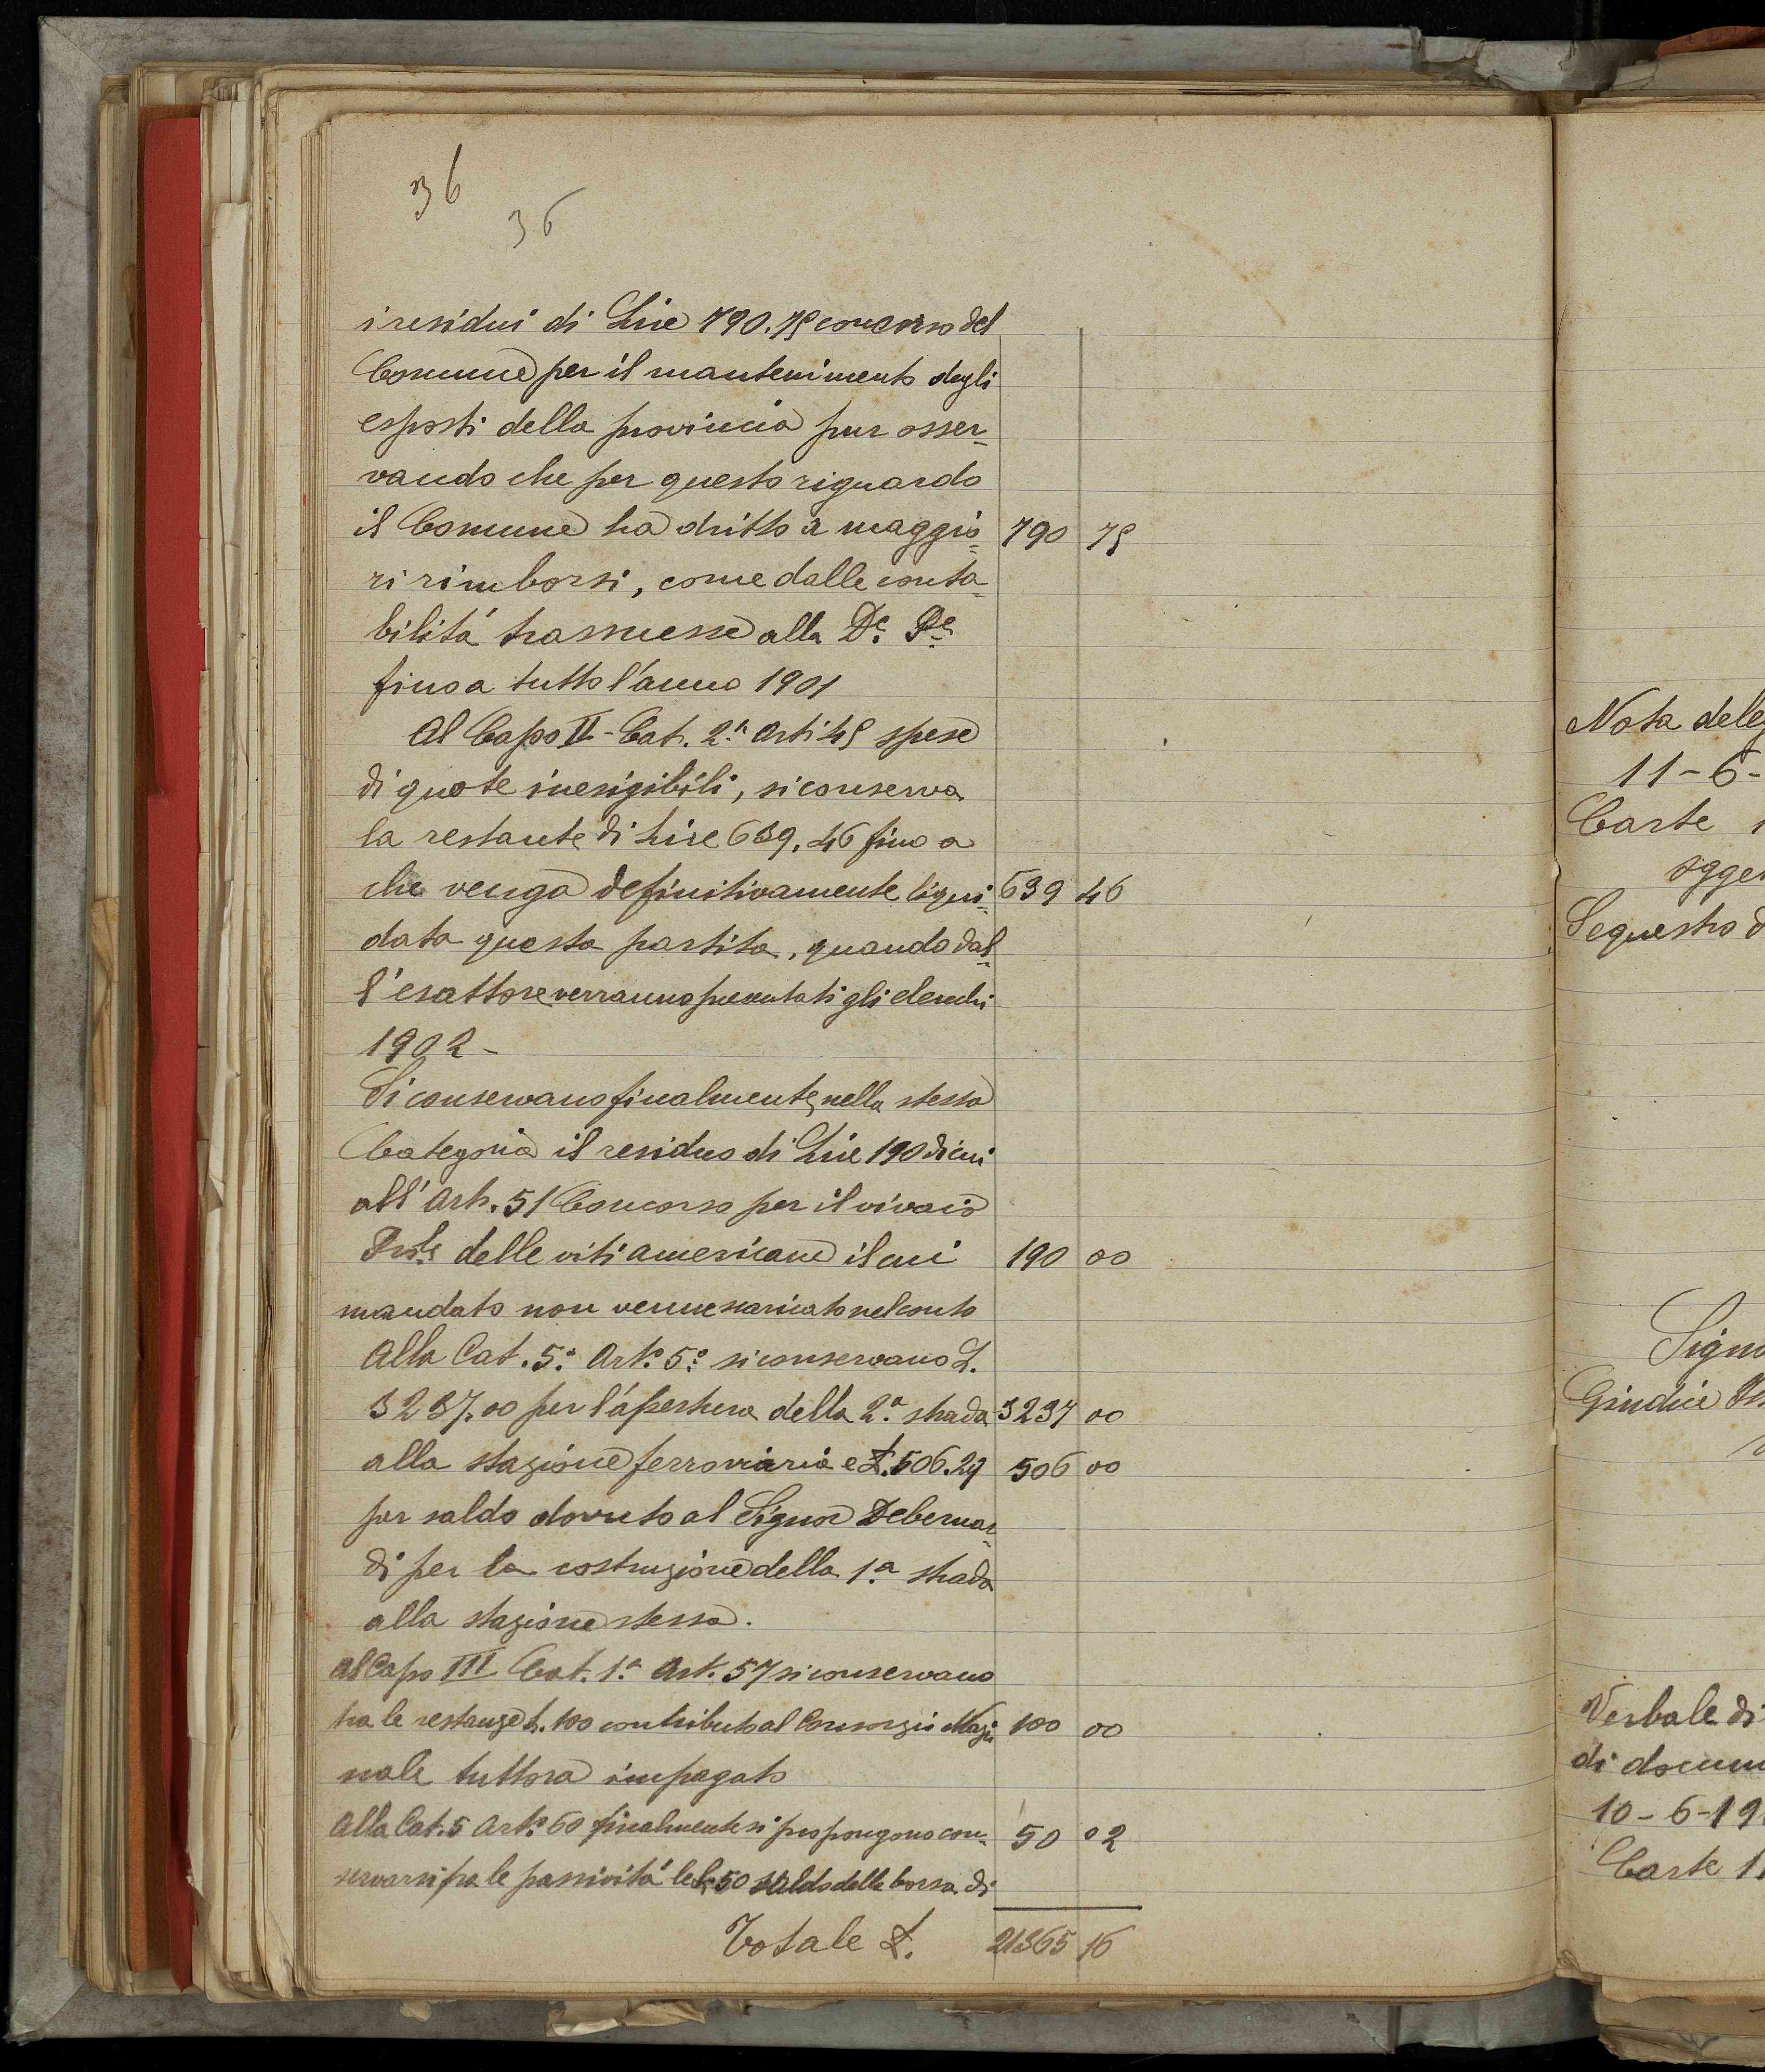 36
36
i residui di Lire 790.75 concorso del
Comune per il mantenimento degli
esposti della provincia pur osser-
vando che per questo riguardo
il Comune ha dritto a maggio- 790 75
ri rimborsi, come dalle conta-
bilitá trasmesse alla De. Pe.
fino a tutto l'anno 1901
Al Capo II - Cat. 2.a Arti 45 spese
di quote inesigibili, si conserva
la restante di Lire 639,46 fino a
che venga definitivamente liqui- 639 46
data questa partita, quando dal-
l'esattore verranno presentati gli elenchi
1902 -
Si conservano finalmente, nella stessa
Categoria il residuo di Lire 190 di cui
all' Art. 51 Concorso per il vivaio
Prle delle viti americane il cui 190 00
mandato non venne scaricato nel conto
Alla Cat. 5.a Art.o 5.o si conservano L.
3237,00 per l'apertura della 2.a strada 3237 00
alla stazione ferroviaria e L. 506.29 506 00
per saldo dovuto al Signor Debernar-
di per la costruzione della 1.a strada
alla stazione stessa.
Al Capo III Cat. 1.a Art. 57 si conservano
tra le restanze L. 100 contributo al Consorzio 100 00
nale tuttora impagato
Alla Cat. 5 Art.o 60 finalmente si propongono con- 50 02
servarsi fra le passivitá le L. 50 saldo della borsa di
Totale L. 21365 16
Nota deleg
11-6-
Carte
ogget
Sequestro d
Signo
Giudice
Verbale di
di docum
10-6-19
Carte 1